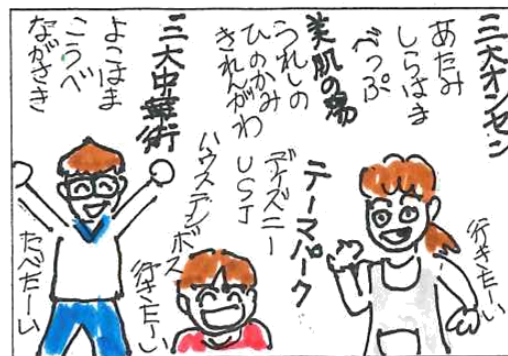 三大オンセン
あたみ
しらはま
べっぷ
美肌の湯
うれしの
ひのかみ
きれんがわ
三大中華街
よこはま
こうべ
ながさき
テーマパーク
ディズニー
USJ
ハウステンボス
行きたーい
行きたーい
たべたーい